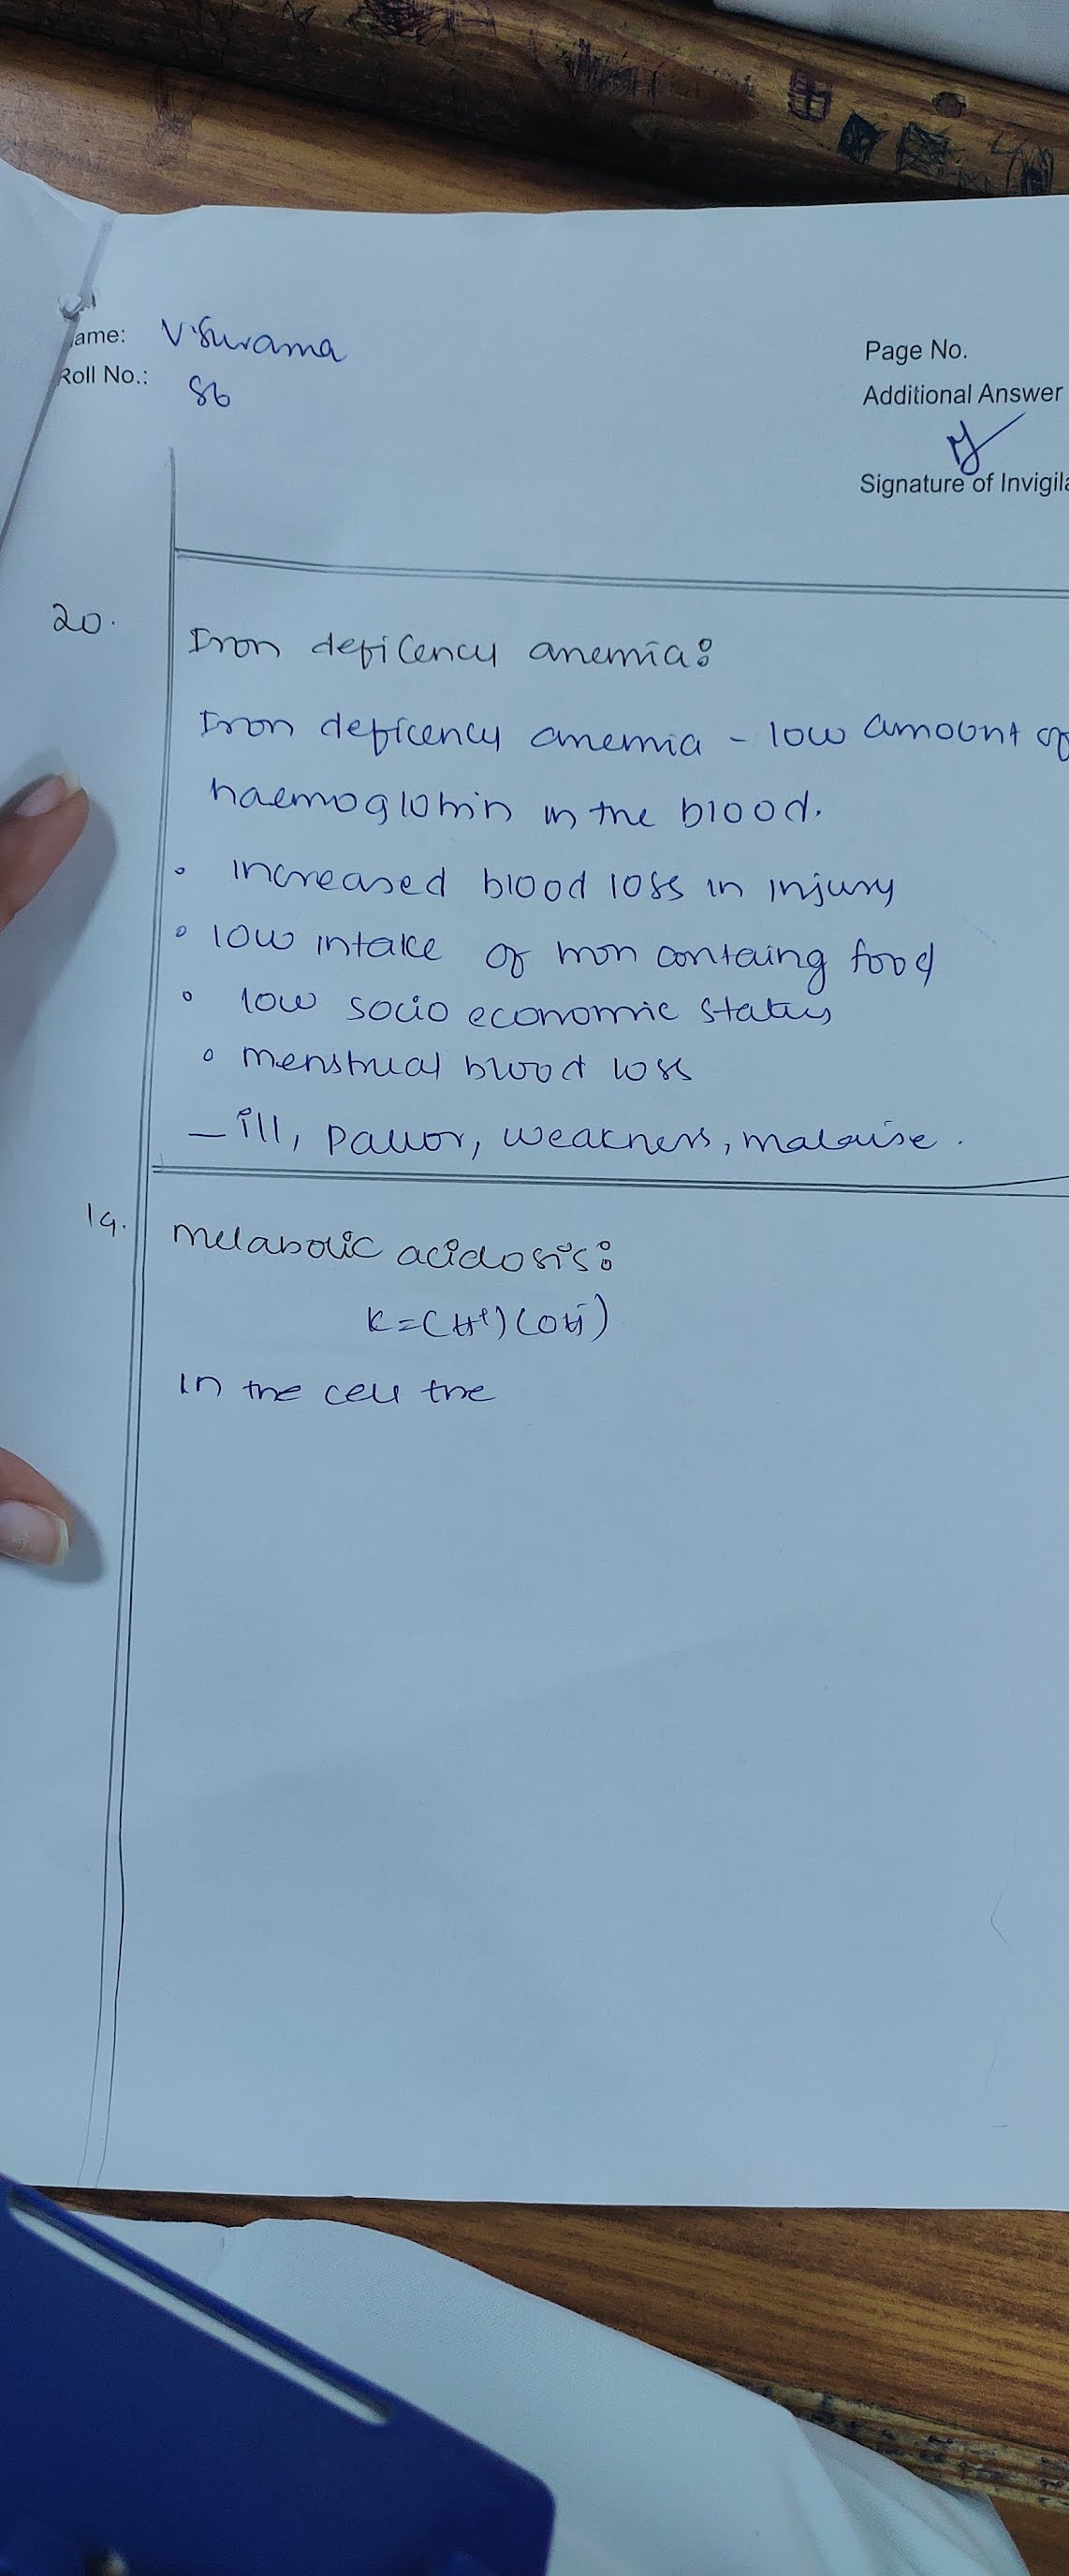 ame: V. Surama
Roll No.: 86
Page No.
Additional Answer
Signature of Invigila
20.
Iron deficency anemia:
Iron deficency anemia - low amount of
haemoglobin in the blood.
• increased blood loss in injury
• low intake of iron containg food
• low socio economic status
• menstrual blood loss
- ill, pallor, weakness, malaise.
19.
Metabolic acidosis:
K=(H+)(OH-)
In the cell the